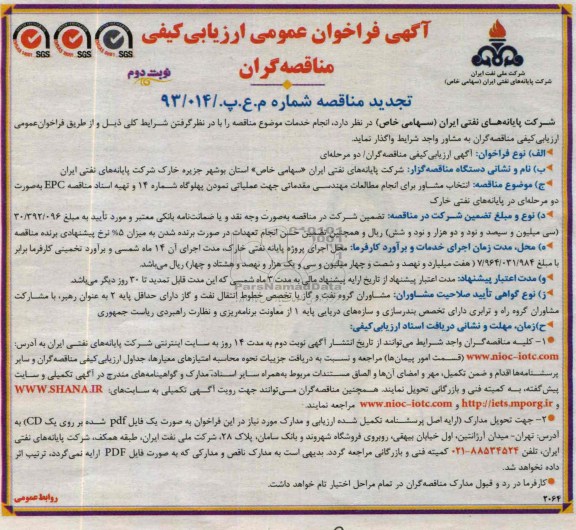 آگهی فراخوان عمومی ارزیابی کیفی
مناقصه‌گران
نوبت دوم
شرکت ملی نفت ایران
شرکت پایانه‌های نفتی ایران (سهامی خاص)
SGS SGS SGS
تجدید مناقصه شماره م.ع.پ./۹۳/۰۱۴
شرکت پایانه‌های نفتی ایران (سهامی خاص) در نظر دارد، انجام خدمات موضوع مناقصه را با در نظر گرفتن شرایط کلی ذیل و از طریق فراخوان عمومی
ارزیابی کیفی مناقصه‌گران به مشاور واجد شرایط واگذار نماید.
الف) نوع فراخوان: آگهی ارزیابی کیفی مناقصه‌گران/ دو مرحله‌ای
ب) نام و نشانی دستگاه مناقصه‌گزار: شرکت پایانه‌های نفتی ایران «سهامی خاص» استان بوشهر جزیره خارک شرکت پایانه‌های نفتی ایران
ج) موضوع مناقصه: انتخاب مشاور برای انجام مطالعات مهندسی مقدماتی جهت عملیاتی نمودن پهلوگاه شماره ۱۴ و تهیه اسناد مناقصه EPC به‌صورت
دو مرحله‌ای در پایانه‌های نفتی خارک
د) نوع و مبلغ تضمین شرکت در مناقصه: تضمین شرکت در مناقصه به‌صورت وجه نقد و یا ضمانت‌نامه بانکی معتبر و مورد تأیید به مبلغ ۳۰/۳۹۲/۰۹۶
(سی میلیون و سیصد و نود و دو هزار و نود و شش) ریال و همچنین تضمین حسن انجام تعهدات در صورت برنده شدن به میزان ۵% نرخ پیشنهادی برنده مناقصه
ه) محل، مدت زمان اجرای خدمات و برآورد کارفرما: محل اجرای پروژه پایانه نفتی خارک، مدت اجرای آن ۱۴ ماه شمسی و برآورد تخمینی کارفرما برابر
با مبلغ ۷/۹۶۴/۰۳۱/۹۸۴ (هفت میلیارد و نهصد و شصت و چهار میلیون و سی و یک هزار و نهصد و هشتاد و چهار) ریال می‌باشد.
و) مدت اعتبار پیشنهاد: مدت اعتبار پیشنهاد از تاریخ ارایه پیشنهاد مالی به مدت ۳ ماه شمسی که این مدت قابل تمدید تا ۳۰ روز دیگر می‌باشد.
ز) نوع گواهی تأیید صلاحیت مشاوران: مشاوران گروه نفت و گاز با تخصص خطوط انتقال نفت و گاز دارای حداقل پایه ۲ به عنوان رهبر، با مشارکت
مشاوران گروه راه و ترابری دارای تخصص بندرسازی و سازه‌های دریایی پایه ۱ از معاونت برنامه‌ریزی و نظارت راهبردی ریاست جمهوری
ح) زمان، مهلت و نشانی دریافت اسناد ارزیابی کیفی:
۱- کلیه مناقصه‌گران واجد شرایط می‌توانند از تاریخ انتشار آگهی نوبت دوم به مدت ۱۴ روز به سایت اینترنتی شرکت پایانه‌های نفتی ایران به آدرس:
www.nioc-iotc.com (قسمت امور پیمان‌ها) مراجعه و نسبت به دریافت جزییات نحوه محاسبه امتیازهای معیارها، جداول ارزیابی کیفی مناقصه‌گران و سایر
پرسشنامه‌ها اقدام و ضمن تکمیل، مهر و امضای آن‌ها و الصاق مستندات مربوط به‌همراه سایر اسناد، مدارک و گواهینامه‌های مندرج در آگهی تکمیلی و سایت
پیش‌گفته، به کمیته فنی و بازرگانی تحویل نمایند. همچنین مناقصه‌گران می‌توانند جهت رویت آگهی تکمیلی به سایت‌های: WWW.SHANA.IR
و http://iets.mporg.ir و www.nioc-iotc.com مراجعه نمایند.
۲- جهت تحویل مدارک (ارایه اصل پرسشنامه تکمیل شده ارزیابی و مدارک مورد نیاز در این فراخوان به صورت یک فایل pdf شده بر روی یک CD) به
آدرس: تهران- میدان آرژانتین، اول خیابان بیهقی، روبروی فروشگاه شهروند و بانک سامان، پلاک ۲۸، شرکت ملی نفت ایران، طبقه همکف، شرکت پایانه‌های نفتی
ایران، تلفن ۸۸۵۳۴۵۲۴-۰۲۱ کمیته فنی و بازرگانی مراجعه گردد. بدیهی است به مدارک ناقص و مدارکی که به صورت فایل PDF ارایه نمی‌گردد، ترتیب اثر
داده نخواهد شد.
کارفرما در رد و قبول مدارک مناقصه‌گران در تمام مراحل اختیار تام خواهد داشت.
۲۰۶۴
روابط عمومی